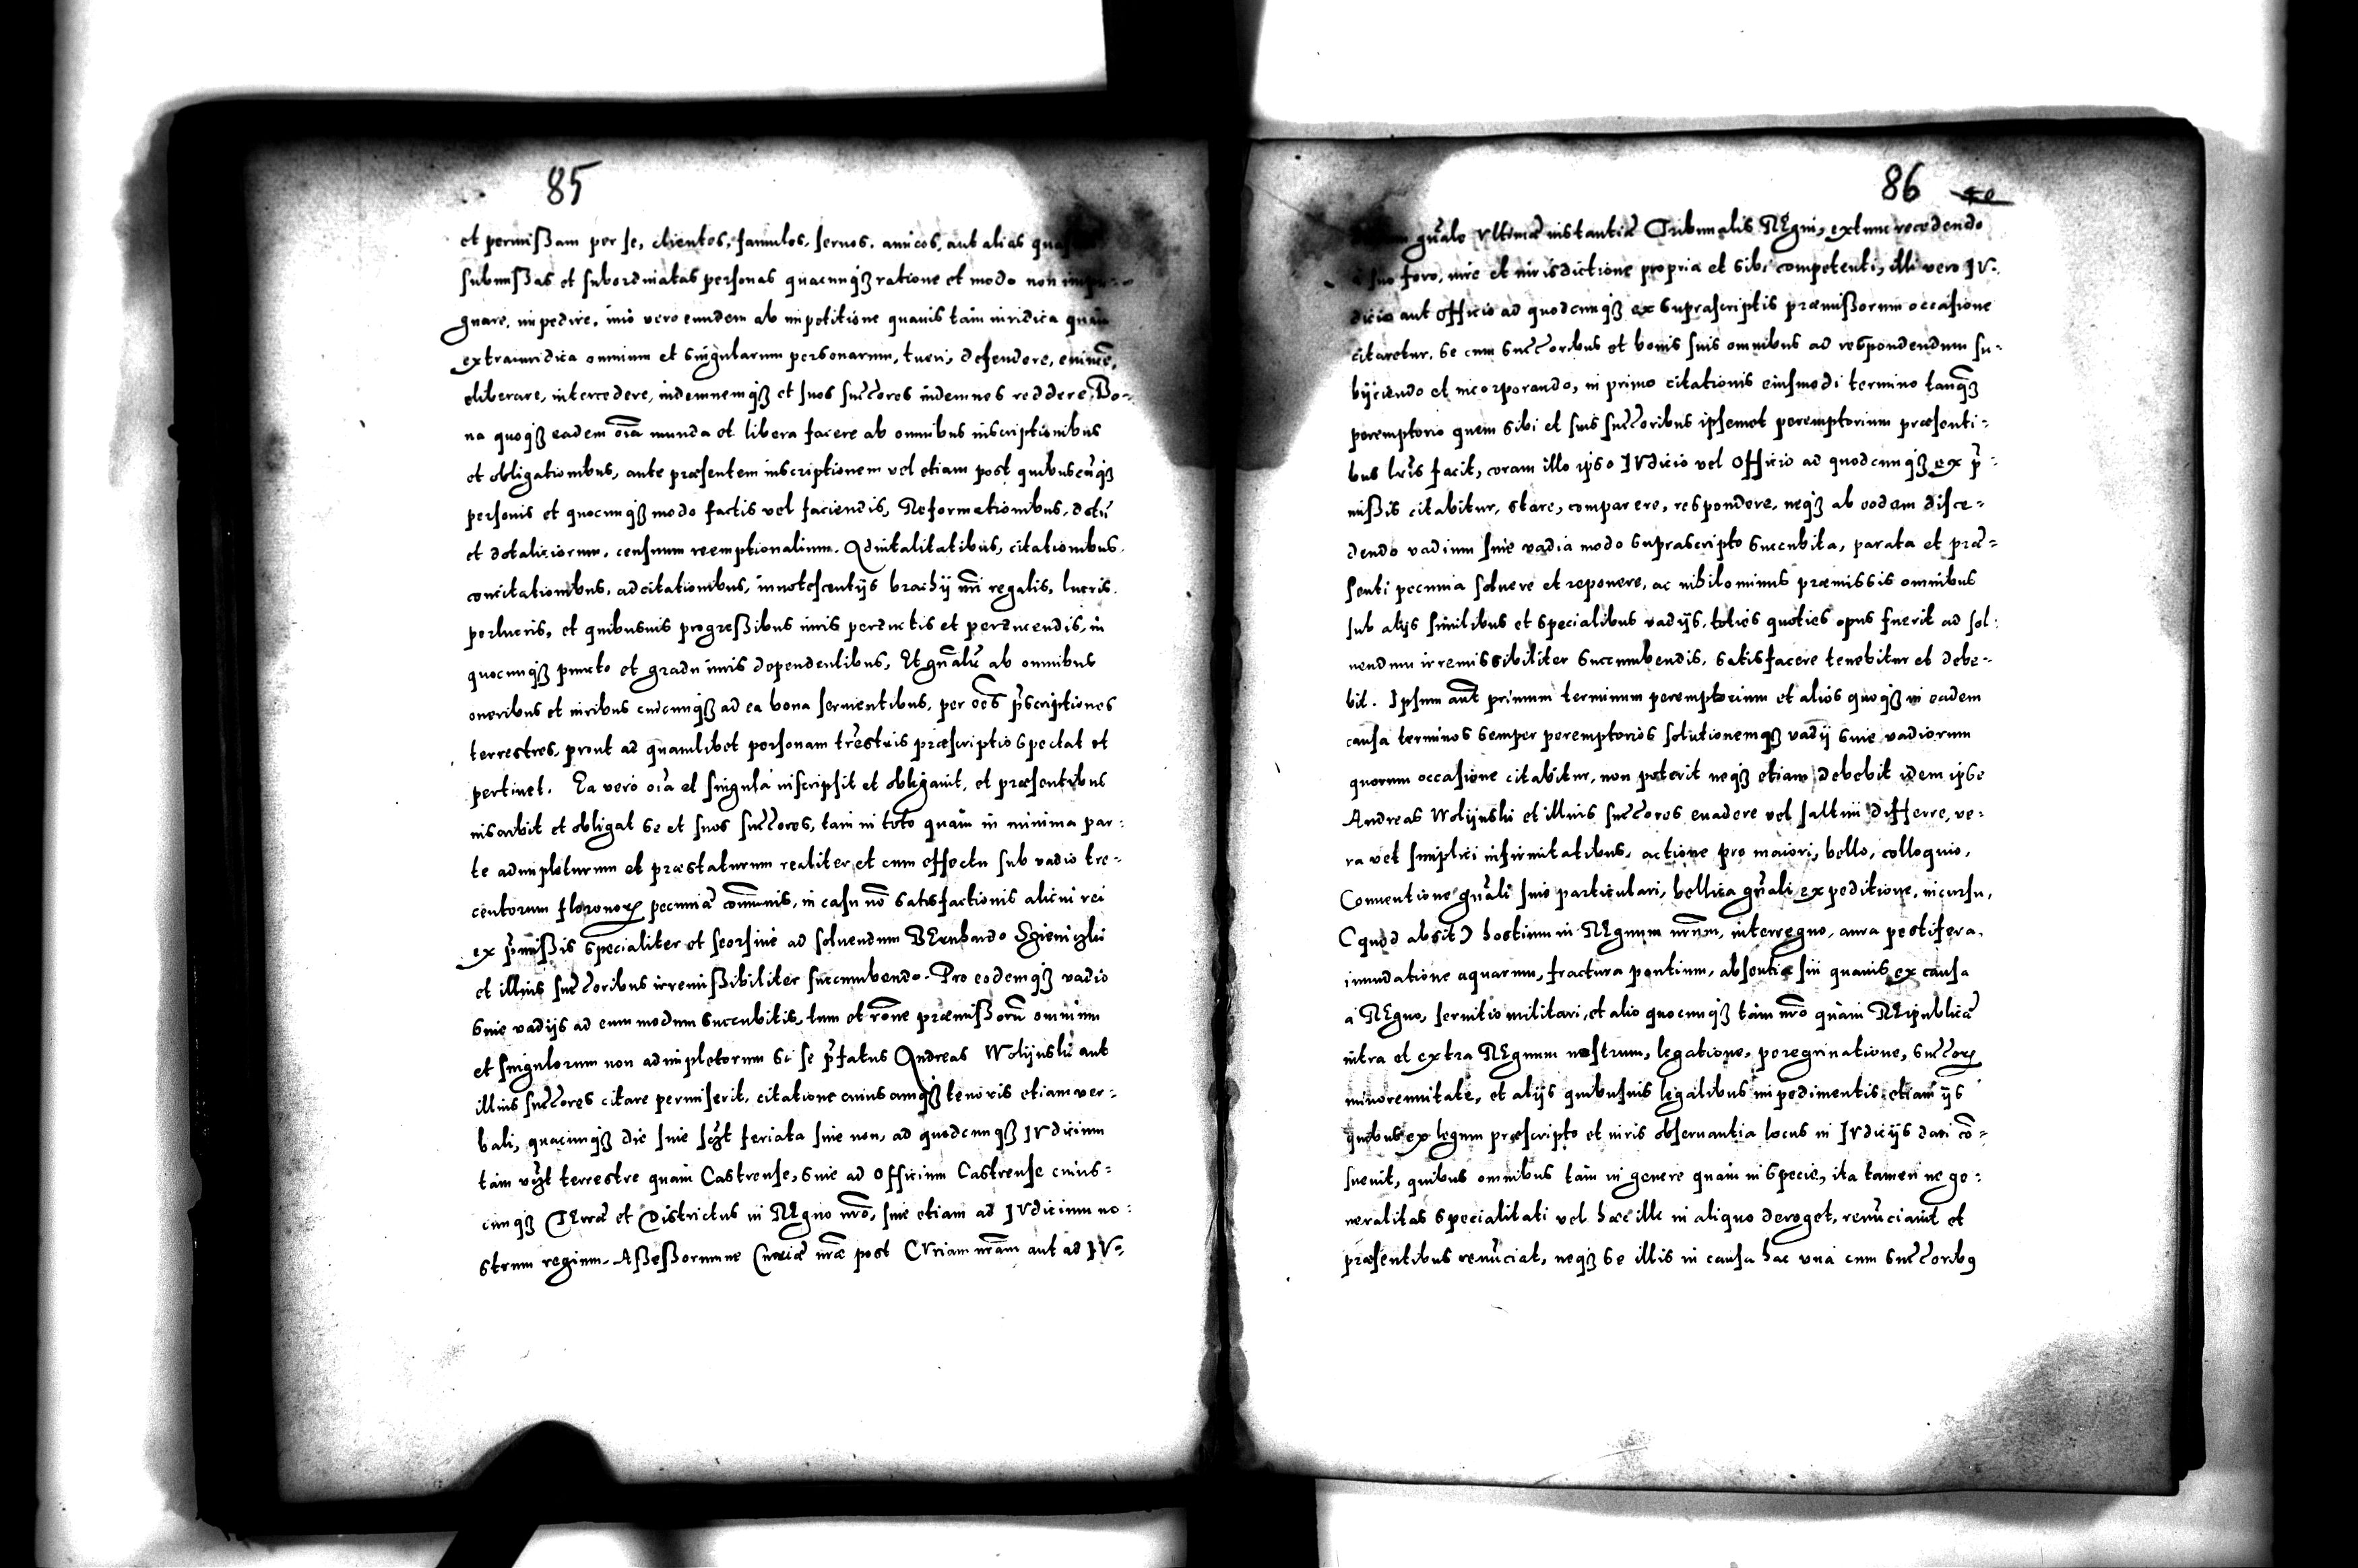 85
et permißam per se, clientes, famulos, seruos, amicos, aut alias
submißas et subordinatas personas quacunqȝ ratione et modo non
gnare, impedire, imò vero eundem ab impetitione quauis tàm iuridica quàm
extraiuridica omnium et singularum personarum, tueri, defendere, euincẽ,
eliberare, intercedere, indemnemqȝ et suos succores indemnes reddere, Bo=
na quoqȝ eadem oĩa munda et libera facere ab omnibus inscriptionibus
et obligationibus, ante præsentem inscriptionem vel etiam post quibuscũqȝ
personis et quocunqȝ modo factis vel faciendis, REformationibus, dotũ
et dotaliciorum, censuum reemptionalium, Aduitalitatibus, citationibus,
concitationibus, adcitationibus, innotescentijs brachij nr̃i regalis, lucris,
perlucris, et quibusuis progreßibus iuris perductis et perducendis, in
quocunqȝ puncto et gradu iuris dependentibus, Et gñalr̃ ab omnibus
oneribus et iuribus cuicunqȝ ad ea bona seruientibus, per oẽs p̃scriptiones
terrestres, prout ad quamlibet personam tr̃estris præscriptio spectat et
pertinet. Ea verò oĩa et singula inscripsit et obligauit, et præsentibus
inscribit et obligat se et suos succores, tàm in toto quàm in minima par=
te adimpleturum et præstaturum realiter et cum effectu sub vadio tre=
centorum florenorꝝ pecuniæ com̃unis, in casu nõ satisfactionis alicui rei
ex p̃mißis specialiter et seorsiue ad soluendum BErnhardo
et illius succoribus irremißibiliter succumbendo. Pro eodemqȝ vadio
siue vadijs ad eum modum succubitis, tum et rõne præmißorũ omnium
et singulorum non adimpletorum si se p̃fatus Andreas Wolijnski aut
illius succores citare permiserit, citatione cuiusamqȝ tenoris etiam ver=
bali, quacunqȝ die siue feriata siue non, ad quodcunqȝ IVdicium
tàm terrestre quàm Castrense, siue ad Officium Castrense cuius=
cunqȝ TErræ et Districtus in REgno nr̃o, siue etiam ad IVdicium no=
strum regium. Aßeßorumue Curiæ nr̃æ post CVriam nr̃am aut ad IV=
86
gñale vltimæ instantiæ Tribunalis REgni, extunc recedendo
à suo foro, iure et iurisdictione propria et sibi competenti, illi vero IV=
dicio aut Officio ad quodcunqȝ ex suprascriptis præmißorum occasione
citaretur, se cum succoribus et bonis suis omnibus ad respondendum su=
bijciendo et incorporando, in primo citationis eiusmodi termino tanqȝ
peremptorio quem sibi et suis succoribus ipsemet peremptorium præsenti=
bus lr̃is facit, coram illo ipso IVdicio vel Officio ad quodcunqȝ ex p̃=
mißis citabitur, stare, comparere, respondere, neqȝ ab eodem disce=
dendo vadium siue vadia modo suprascripto succubita, parata et præ=
senti pecunia soluere et reponere, ac nihilominus præmissis omnibus
sub alijs similibus et specialibus vadijs, toties quoties opus fuerit ad sol=
uendum irremissibiliter succumbendis, satisfacere tenebitur et debe=
bit. Ipsum aũt primum terminum peremptorium et alios quoqȝ in eadem
causa terminos semper peremptorios solutionemqȝ vadij siue vadiorum
quorum occasione citabitur, non poterit neqȝ etiam debebit idem ipse
Andreas Wolijnski et illius succores euadere vel saltim differre, ve=
ra vel simplici infirmitatibus, actione pro maiori, bello, colloquio,
Conuentione gñali siue particulari, bellica gñali expeditione, incursu,
(quod absit) hostium in REgnum nr̃um, interregno, aura pestifera,
inundatione aquarum, fractura pontium, absentia sui quauis ex causa
à REgno, seruitio militari, et alio quocunqȝ tàm nr̃o quàm REipublicæ
intra et extra REgnum nostrum, legatione, peregrinatione, succorꝝ
minorennitate, et alijs quibusuis legalibus impedimentis, etiam ijs
quibus ex legum præscripto et iuris obseruantia locus in IVdicijs dari cõ=
sueuit, quibus omnibus tàm in genere quàm in specie, ita tamen ne ge=
neralitas specialitati vel hæc illi in aliquo deroget, renũciauit et
præsentibus renũciat, neqȝ se illis in causa hac vnà cum succoribꝰ